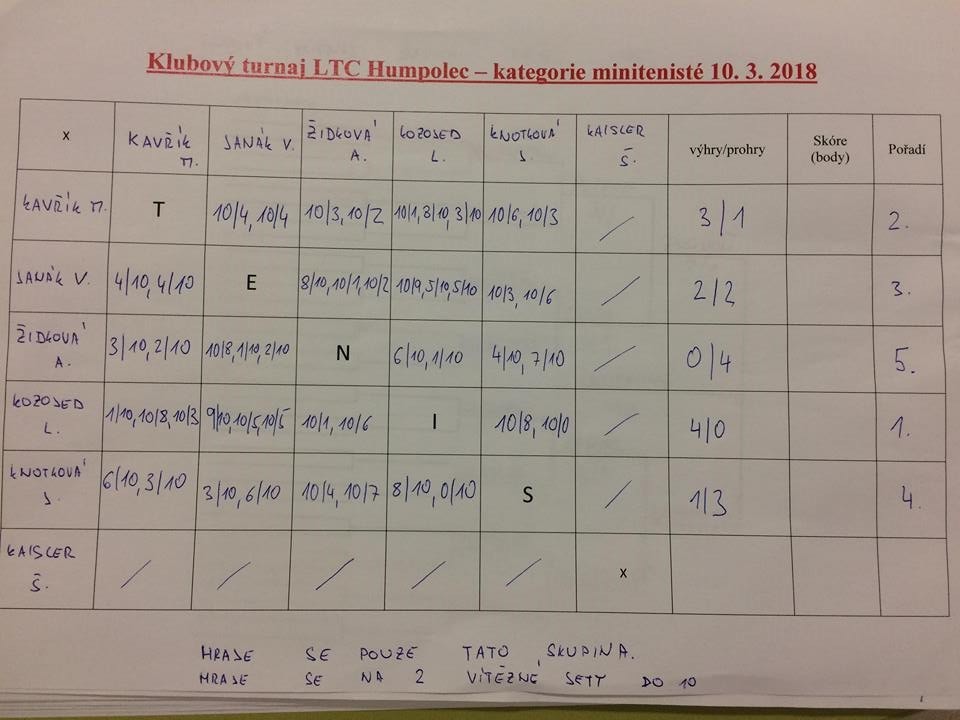 Klubový turnaj LTC Humpolec – kategorie minitenisté 10. 3. 2018
x KAVŘÍK M. JANÁK V. ŽIDKOVÁ A. KOZOSED L. KNOTKOVÁ J. KAISLER Š. výhry/prohry Skóre (body) Pořadí
KAVŘÍK M. T 10/4, 10/4 10/3, 10/2 10/1, 8/10, 3/10 10/6, 10/3 / 3/1 2.
JANÁK V. 4/10, 4/10 E 8/10, 10/1, 10/2 10/9, 5/10, 5/10 10/3, 10/6 / 2/2 3.
ŽIDKOVÁ A. 3/10, 2/10 10/8, 1/10, 2/10 N 6/10, 1/10 4/10, 7/10 / 0/4 5.
KOZOSED L. 1/10, 10/8, 10/3 9/10, 10/5, 10/5 10/1, 10/6 I 10/8, 10/0 / 4/0 1.
KNOTKOVÁ J. 6/10, 3/10 3/10, 6/10 10/4, 10/7 8/10, 0/10 S / 1/3 4.
KAISLER Š. / / / / / x
HRAJE SE POUZE TATO SKUPINA.
HRAJE SE NA 2 VÍTĚZNÉ SETY DO 10